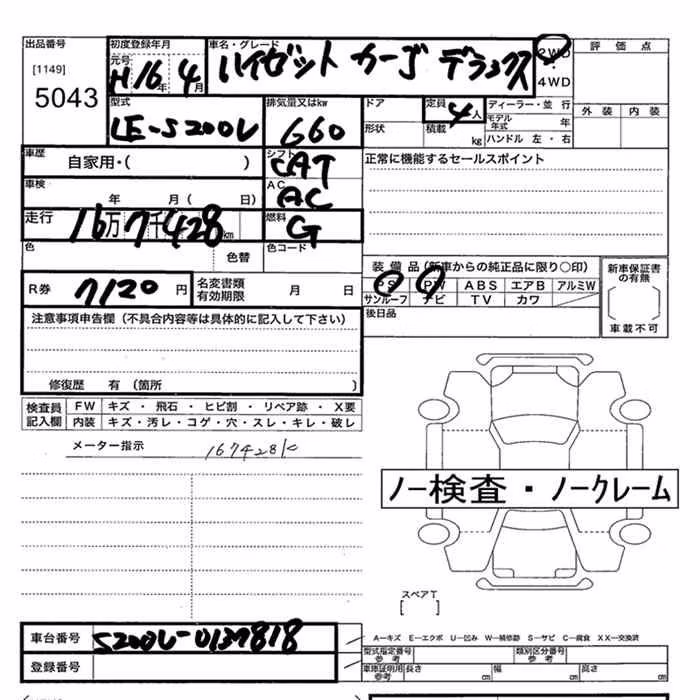 出品番号 初度登録年月 車名・グレード 2WD 評価点
[1149] 元号 H16年4月 ハイゼットカーゴ デラックス ・
5043 4WD
型式 排気量又はkw ドア 定員 4人 ディーラー・並行 外装 内装
LE-S200V 660 形状 積載 kg モデル年式 年
ハンドル 左・右
車歴 自家用・( ) シフト CAT 正常に機能するセールスポイント
車検 年 月( 日) AC AC
走行 16万7千428km 燃料 G
色 色替 色コード
装備品(新車からの純正品に限り○印) 新車保証書の有無
R券 7120円 名変書類有効期限 月 日 PS PW ABS エアB アルミW
サンルーフ ナビ TV カワ 車載不可
注意事項申告欄(不具合内容等は具体的に記入して下さい) 後日品
修復歴 有(箇所 )
検査員 FW キズ ・ 飛石 ・ ヒビ割 ・ リペア跡 ・ X要
記入欄 内装 キズ・汚レ・コゲ・穴・スレ・キレ・破レ
メーター指示 167428K
ノー検査・ノークレーム
スペアT
[ ]
車台番号 S200V-0137818 A−キズ E−エクボ U−凹み W−補修跡 S−サビ C−腐食 XX−交換済
型式指定番号 参考 類別区分番号 参考
登録番号 車庫証明用 参考 長さ cm 幅 cm 高さ cm